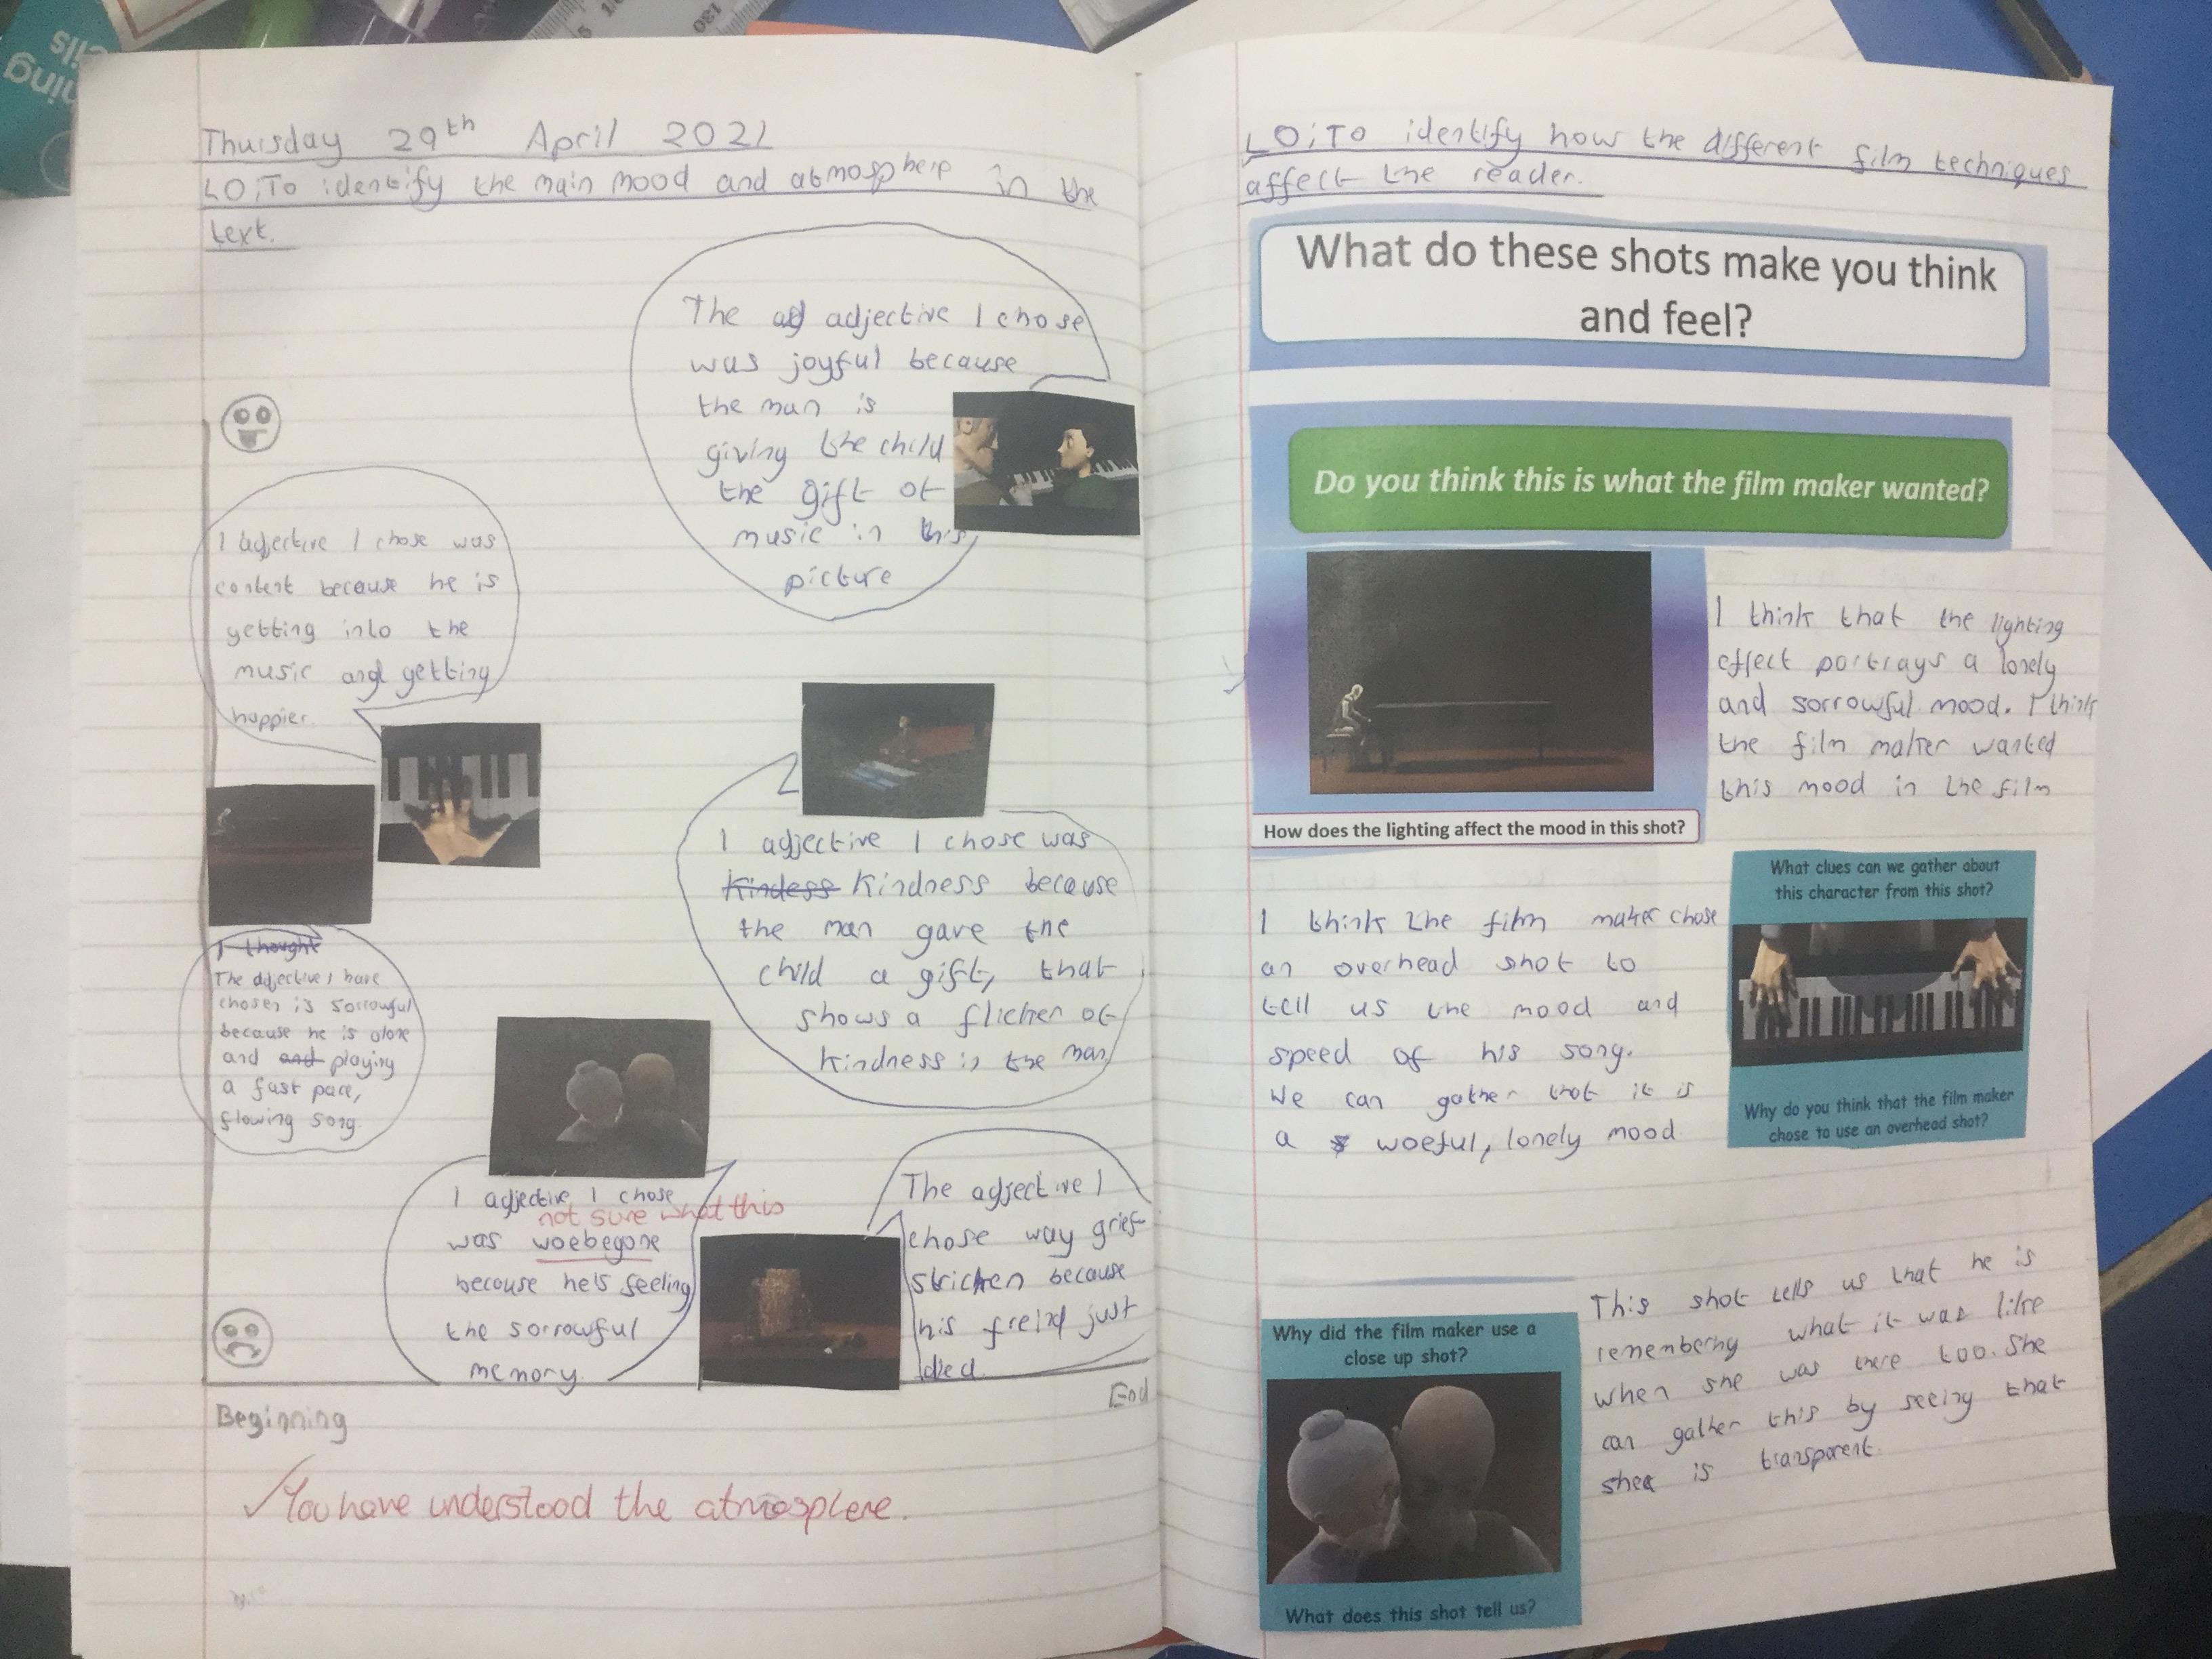 Thursday 29th April 2021
LO: To identify the main mood and atmosphere in the
text.
The ad adjective I chose
was joyful because
the man is
giving the child
the gift of
music in this
picture
I adjective I chose was
content because he is
getting into the
music and getting
happier.
I adjective I chose was
Kindess Kindness because
the man gave the
child a gift, that
shows a flicker of
kindness in the man
I thought
The adjective I have
chosen is sorrowful
because he is alone
and and playing
a fast pace,
flowing song.
I adjective I chose
not sure what this
was woebegone
because he's feeling
the sorrowful
memory.
The adjective I
chose way grief
stricken because
his freind just
died.
Beginning
End
✓ You have understood the atmosphere.
LO: To identify how the different film techniques
affect the reader.
What do these shots make you think
and feel?
Do you think this is what the film maker wanted?
I think that the lighting
effect portrays a lonely
and sorrowful mood. I think
the film maker wanted
this mood in the film
How does the lighting affect the mood in this shot?
What clues can we gather about
this character from this shot?
I think the film maker chose
an overhead shot to
tell us the mood and
speed of his song.
We can gather that it is
a woeful, lonely mood
Why do you think that the film maker
chose to use an overhead shot?
Why did the film maker use a
close up shot?
This shot tells us that he is
remembering what it was like
when she was there too. She
can gather this by seeing that
shea is transparent.
What does this shot tell us?